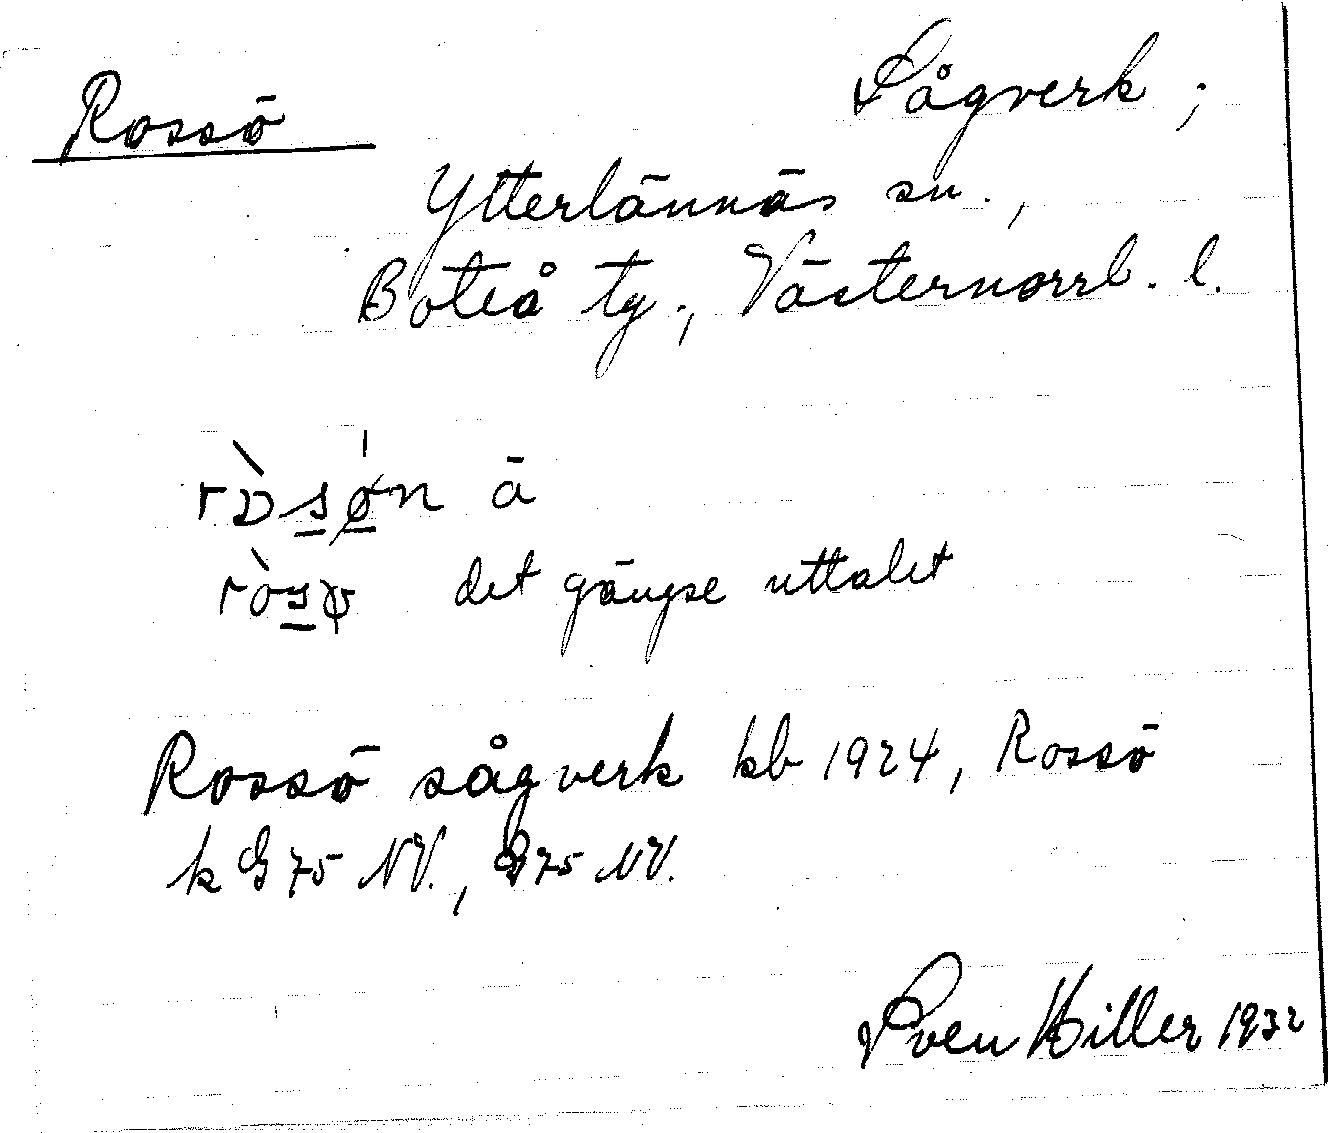 Rossö Sågverk;
Ytterlännäs sn.,
Boteå tg., Västernorrl. l.
ä
det gängse uttalet
Rossö sågverk kb 1924, Rossö
k G 75 NV., G 75 NV.
Sven Hiller 1932